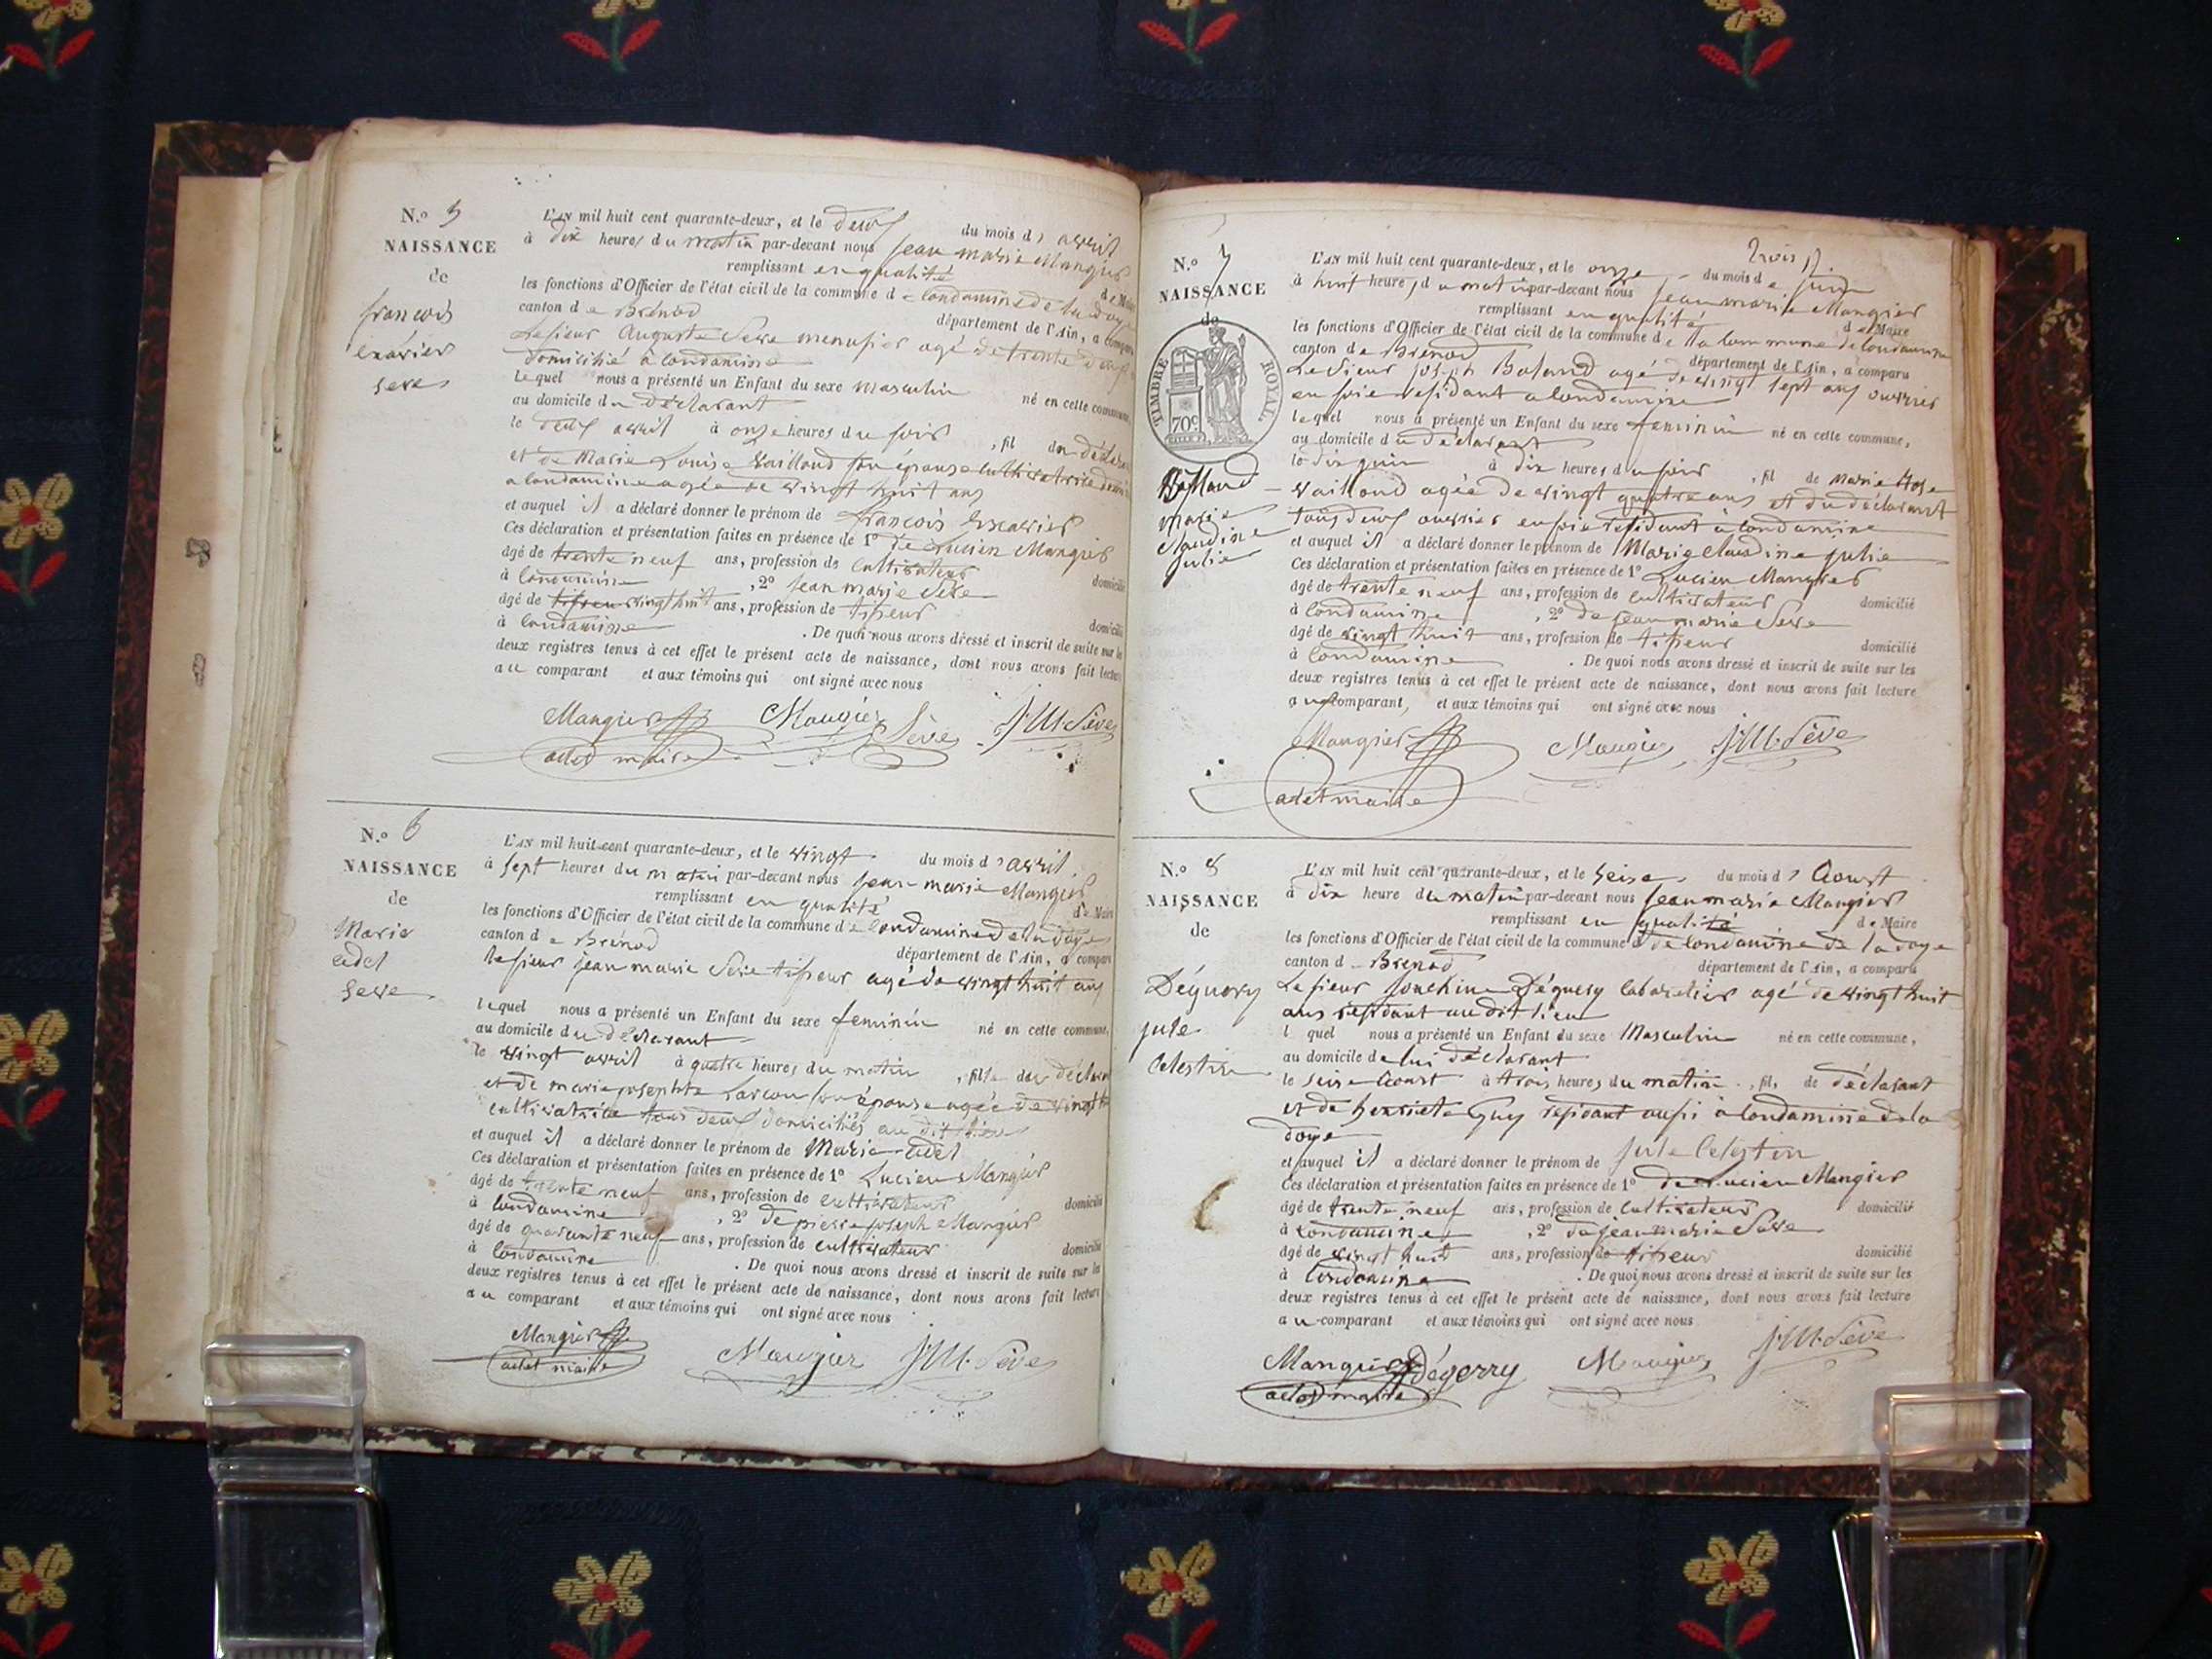 N.º 5
NAISSANCE
de
francois
Exavier
Seve
L'AN mil huit cent quarante-deux, et le deux du mois d'avril
à dix heures du matin par-devant nous jean marie Mangier
remplissant en qualité de Maire
les fonctions d'Officier de l'état civil de la commune de Condamine de la doye
canton de Brénod département de l'Ain, a comparu
Le sieur Auguste Seve menusier agé de trente deux
domicilié à Condamine
Lequel nous a présenté un Enfant du sexe masculin né en cette commune,
au domicile du déclarant
le deux avril à onze heures du soir, fil du déclarant
et de Marie Louise Vailloud son épouse cultivatrice
a Condamine agée de vingt huit ans
et auquel il a déclaré donner le prénom de francois Exavier
Ces déclaration et présentation faites en présence de 1º de Lucien Mangier
âgé de trente neuf ans, profession de cultivateur domicilié
à Condamine, 2º jean marie Seve
âgé de vingt huit ans, profession de tisseur domicilié
à Condamine. De quoi nous avons dressé et inscrit de suite sur les
deux registres tenus à cet effet le présent acte de naissance, dont nous avons fait lecture
au comparant et aux témoins qui ont signé avec nous
Mangier Maugier Sève J M Sève
adet maire
N.º 6
NAISSANCE
de
Marie
adel
Seve
L'AN mil huit cent quarante-deux, et le vingt du mois d'avril
à sept heures du matin par-devant nous jean marie Mangier
remplissant en qualité de Maire
les fonctions d'Officier de l'état civil de la commune de Condamine de la doye
canton de Brénod département de l'Ain, a comparu
le sieur jean marie Seve tisseur agé de vingt huit ans
lequel nous a présenté un Enfant du sexe feminin né en cette commune,
au domicile du déclarant
le vingt avril à quatre heures du matin, fille du déclarant
et de marie josephte Larcon son épouse agée de vingt
cultivatrice tous deux domiciliés au dit lieu
et auquel il a déclaré donner le prénom de Marie adel
Ces déclaration et présentation faites en présence de 1º Lucien Mangier
âgé de trente neuf ans, profession de cultivateur domicilié
à Condamine, 2º de pierre joseph Mangier
âgé de quarante neuf ans, profession de cultivateur domicilié
à Condamine. De quoi nous avons dressé et inscrit de suite sur les
deux registres tenus à cet effet le présent acte de naissance, dont nous avons fait lecture
au comparant et aux témoins qui ont signé avec nous
Mangier Maugier J M Sève
adet maire
trois
N.º 7
NAISSANCE
de
TIMBRE ROYAL
70 c
Balland
marie
Claudine
julie
L'AN mil huit cent quarante-deux, et le onze du mois de juin
à huit heures du matin par-devant nous jean marie Mangier
remplissant en qualité de Maire
les fonctions d'Officier de l'état civil de la commune de la Commune de Condamine
canton de Brenod département de l'Ain, a comparu
Le Sieur joseph Baland agé de vingt sept ans ouvrier
en soie residant a Condamine
lequel nous a présenté un Enfant du sexe feminin né en cette commune,
au domicile du déclarant
le dix juin à dix heures du soir, fil de marie Rose
Vailloud agée de vingt quatre ans et du déclarant
tous deux ouvrier en soie residant à Condamine
et auquel il a déclaré donner le prénom de Marie Claudine julie
Ces déclaration et présentation faites en présence de 1º Lucien Mangier
âgé de trente neuf ans, profession de cultivateur domicilié
à Condamine, 2º de jean marie Seve
âgé de vingt huit ans, profession de tisseur domicilié
à Condamine. De quoi nous avons dressé et inscrit de suite sur les
deux registres tenus à cet effet le présent acte de naissance, dont nous avons fait lecture
au comparant, et aux témoins qui ont signé avec nous
Mangier Maugier J M Sève
adet maire
N.º 8
NAISSANCE
de
Déguery
jule
Celestin
L'AN mil huit cent quarante-deux, et le seise du mois d'Aoust
à dix heure du matin par-devant nous jean marie Mangier
remplissant en qualité de Maire
les fonctions d'Officier de l'état civil de la commune de Condamine de la doye
canton de Brenod département de l'Ain, a comparu
Le sieur Déguery cabaretier agé de vingt huit
ans résidant audit lieu
l quel nous a présenté un Enfant du sexe Masculin né en cette commune,
au domicile de lui déclarant
le seise Aoust à trois heures du matin, fils de déclarant
et de henriete Guy residant aussi à Condamine de la
doye
et auquel il a déclaré donner le prénom de jule Celestin
Ces déclaration et présentation faites en présence de 1º de Lucien Mangier
âgé de trente neuf ans, profession de cultivateur domicilié
à Condamine, 2º de jean marie Seve
âgé de vingt huit ans, profession de tisseur domicilié
à Condamine. De quoi nous avons dressé et inscrit de suite sur les
deux registres tenus à cet effet le présent acte de naissance, dont nous avons fait lecture
au comparant et aux témoins qui ont signé avec nous
Mangier Dégerry Maugier J M Sève
adet maire